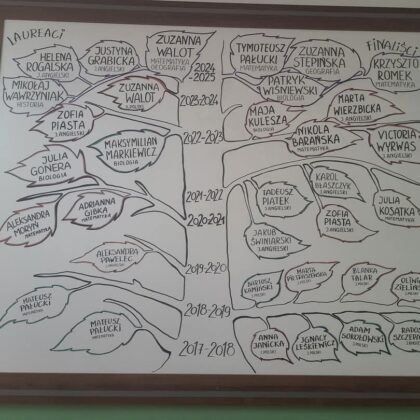 LAUREACI
FINALIŚCI
HELENA
ROGALSKA
J.ANGIELSKI
JUSTYNA
GRABICKA
J.ANGIELSKI
ZUZANNA
WALOT
MATEMATYKA
GEOGRAFIA
2024-
2025
TYMOTEUSZ
PAŁUCKI
MATEMATYKA
ZUZANNA
STEPIŃSKA
GEOGRAFIA
KRZYSZTO
ROMEK
MATEMATYKA
MIKOŁAJ
WAWRZYNIAK
HISTORIA
ZUZANNA
WALOT
2023-2024
PATRYK
WIŚNIEWSKI
BIOLOGIA
MAJA
KULESZA
BIOLOGIA
MARTA
WIERZBICKA
J.ANGIELSKI
ZOFIA
PIASTA
J.ANGIELSKI
2022-2023
NIKOLA
BARAŃSKA
MATEMATYKA
VICTORIA
WYRWAS
J.ANGIELSKI
JULIA
GONERA
BIOLOGIA
MAKSYMILIAN
MARKIEWICZ
BIOLOGIA
2021-2022
TADEUSZ
PIĄTEK
J.ANGIELSKI
KAROL
BŁASZCZYK
J.ANGIELSKI
JULIA
KOSATKA
J.ANGIELSKI
ALEKSANDRA
MORYŃ
MATEMATYKA
ADRIANNA
GIBKA
MATEMATYKA
2020-2021
ZOFIA
PIASTA
J.ANGIELSKI
JAKUB
ŚWINIARSKI
J.ANGIELSKI
ALEKSANDRA
PAWELEC
J.ANGIELSKI
2019-2020
DARIUSZ
KAMIŃSKI
J.POLSKI
MARTA
J.POLSKI
BLANKA
TALAR
J.POLSKI
MATEUSZ
PAŁUCKI
MATEMATYKA
2018-2019
MATEUSZ
PAŁUCKI
MATEMATYKA
2017-2018
ANNA
JANICKA
J.POLSKI
IGNACY
LEŚKIEWICZ
J.POLSKI
ADAM
SOKOŁOWSKI
J.POLSKI